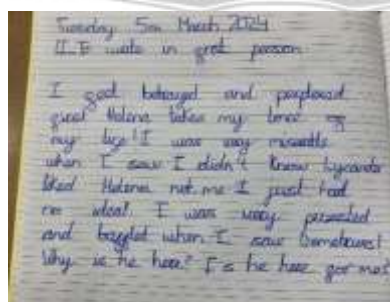 Tuesday 5th March 2024
L.I: write in
I feel betrayed and perplexed
Helena taken my love
my life! I was very miserable
when I saw I didn't know Lysander
liked Helena not me I just had
no idea! I was very
and baffled when I saw Demetrius!
Why is he here? Is he here for me?